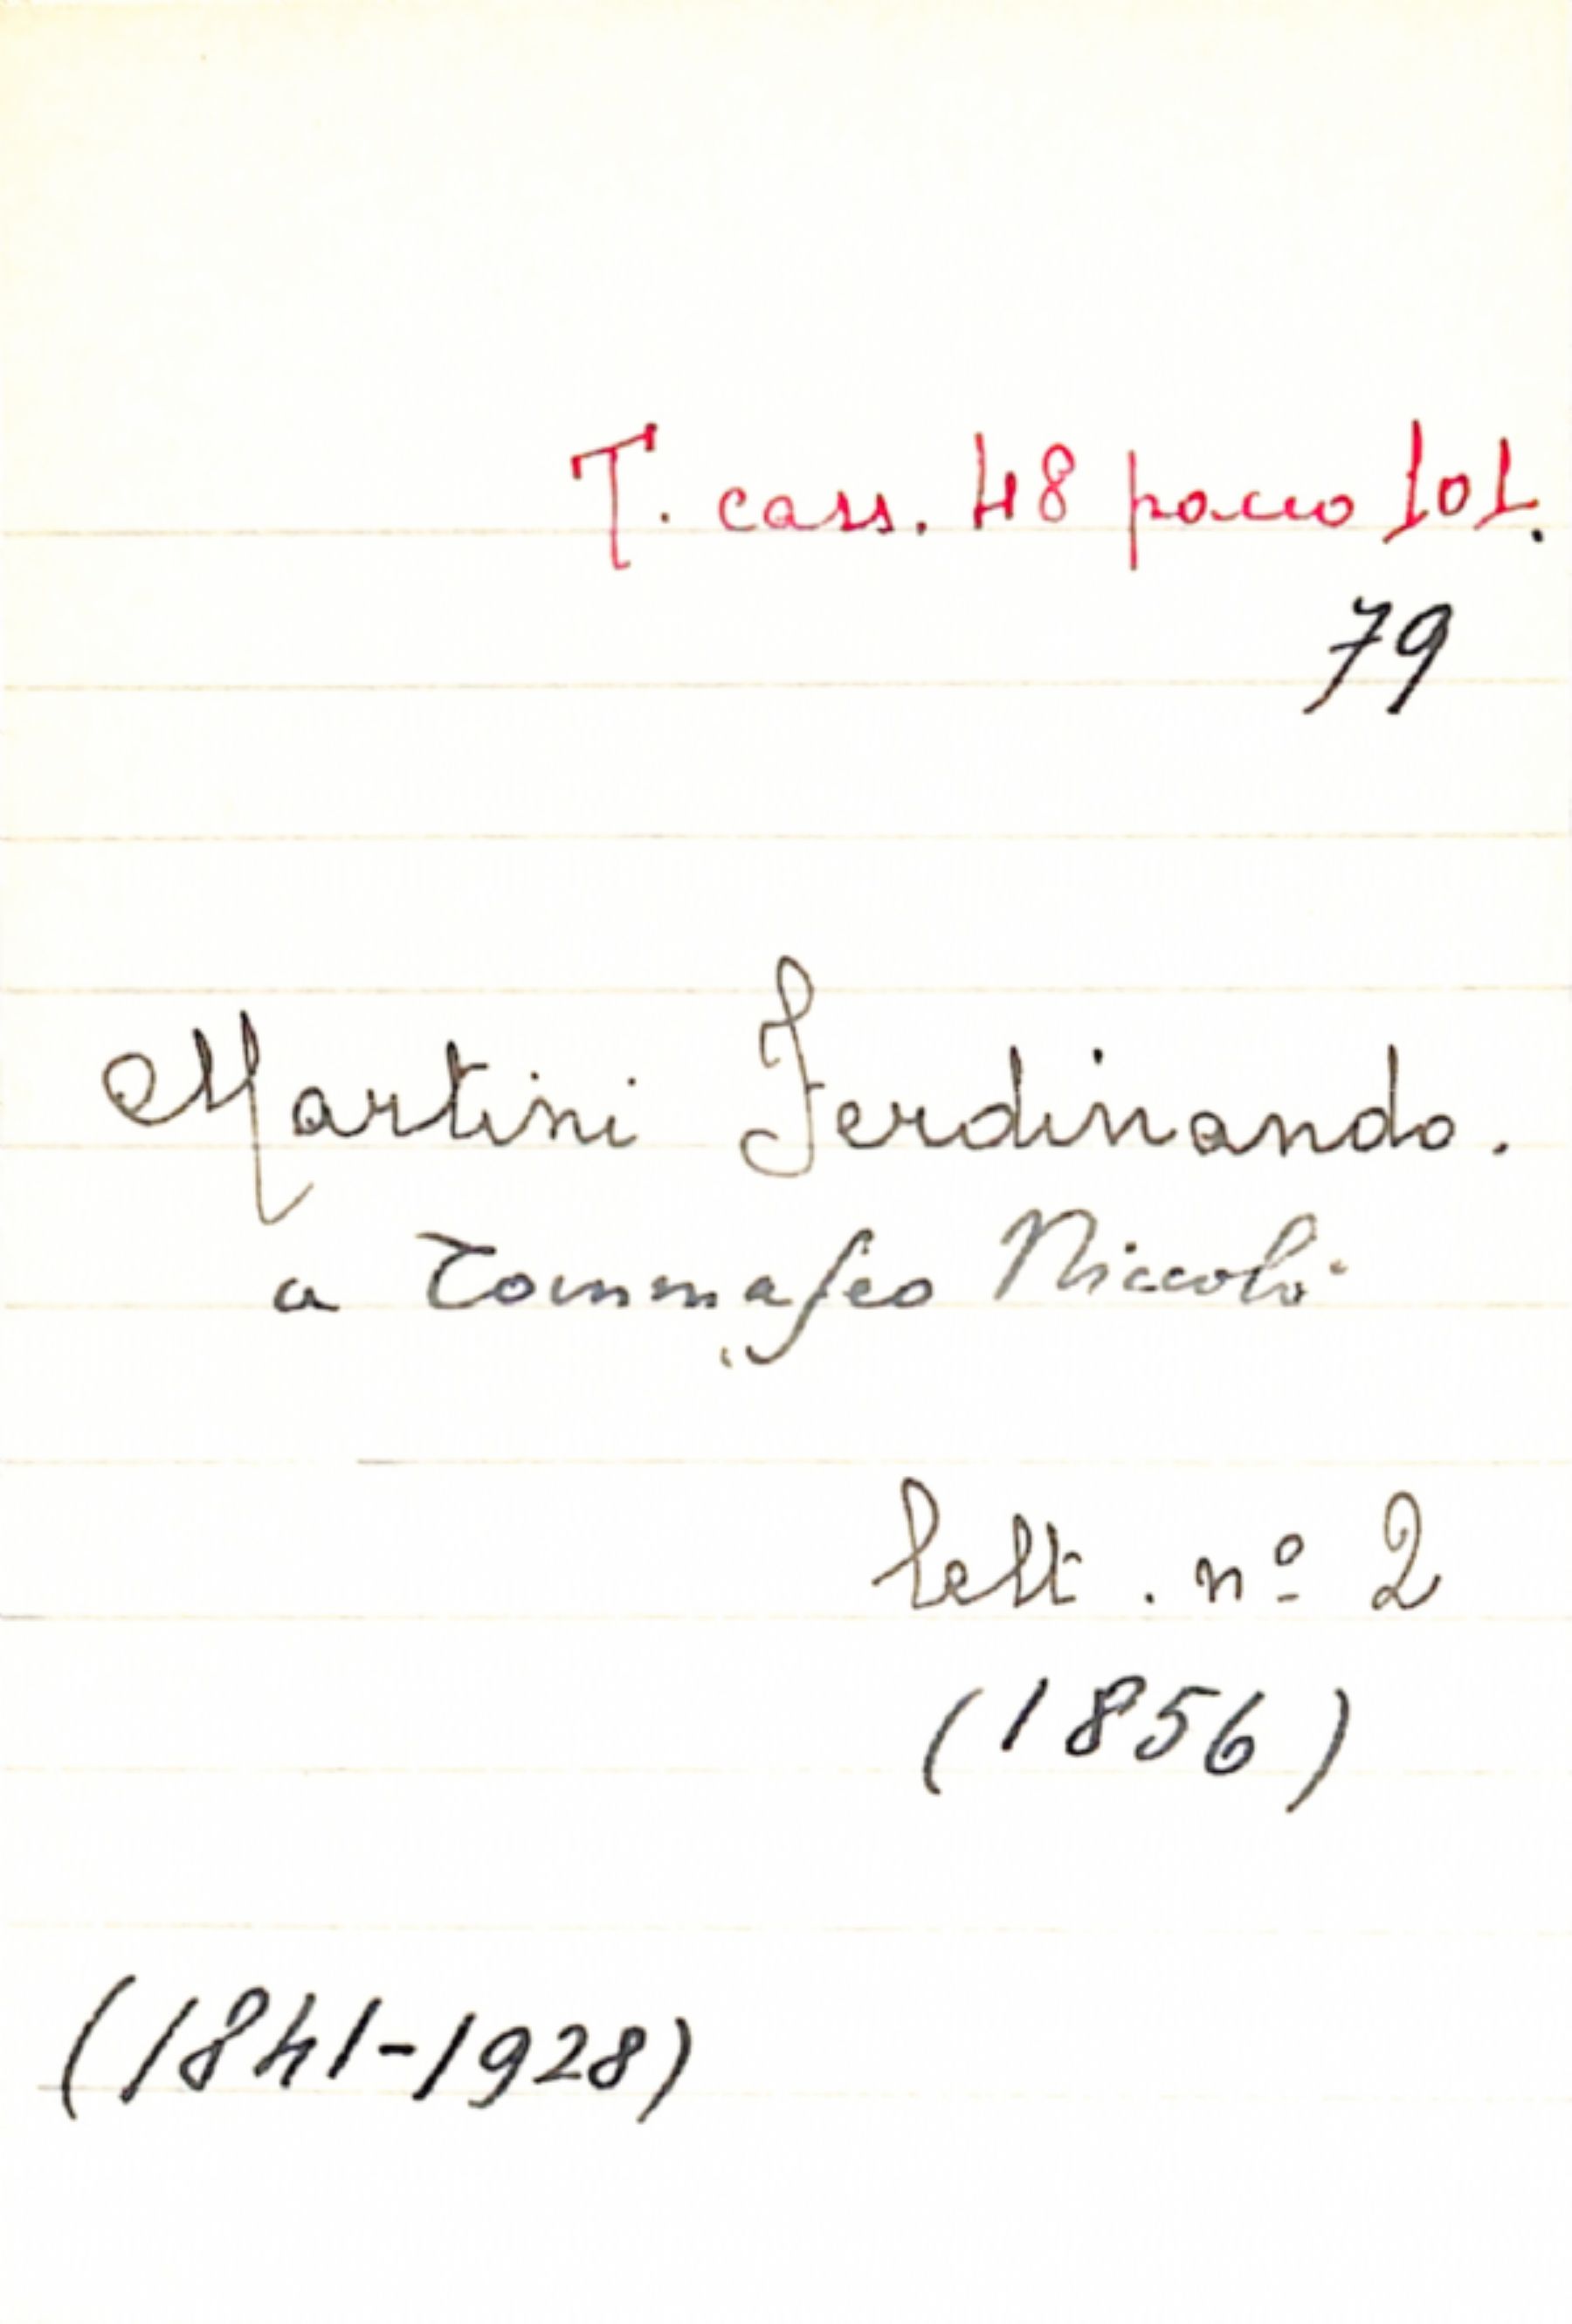 T. cass. 48 pacco 101.
79
Martini Ferdinando.
a Tommaseo Niccolò
lett. nº 2
(1856)
(1841-1928)